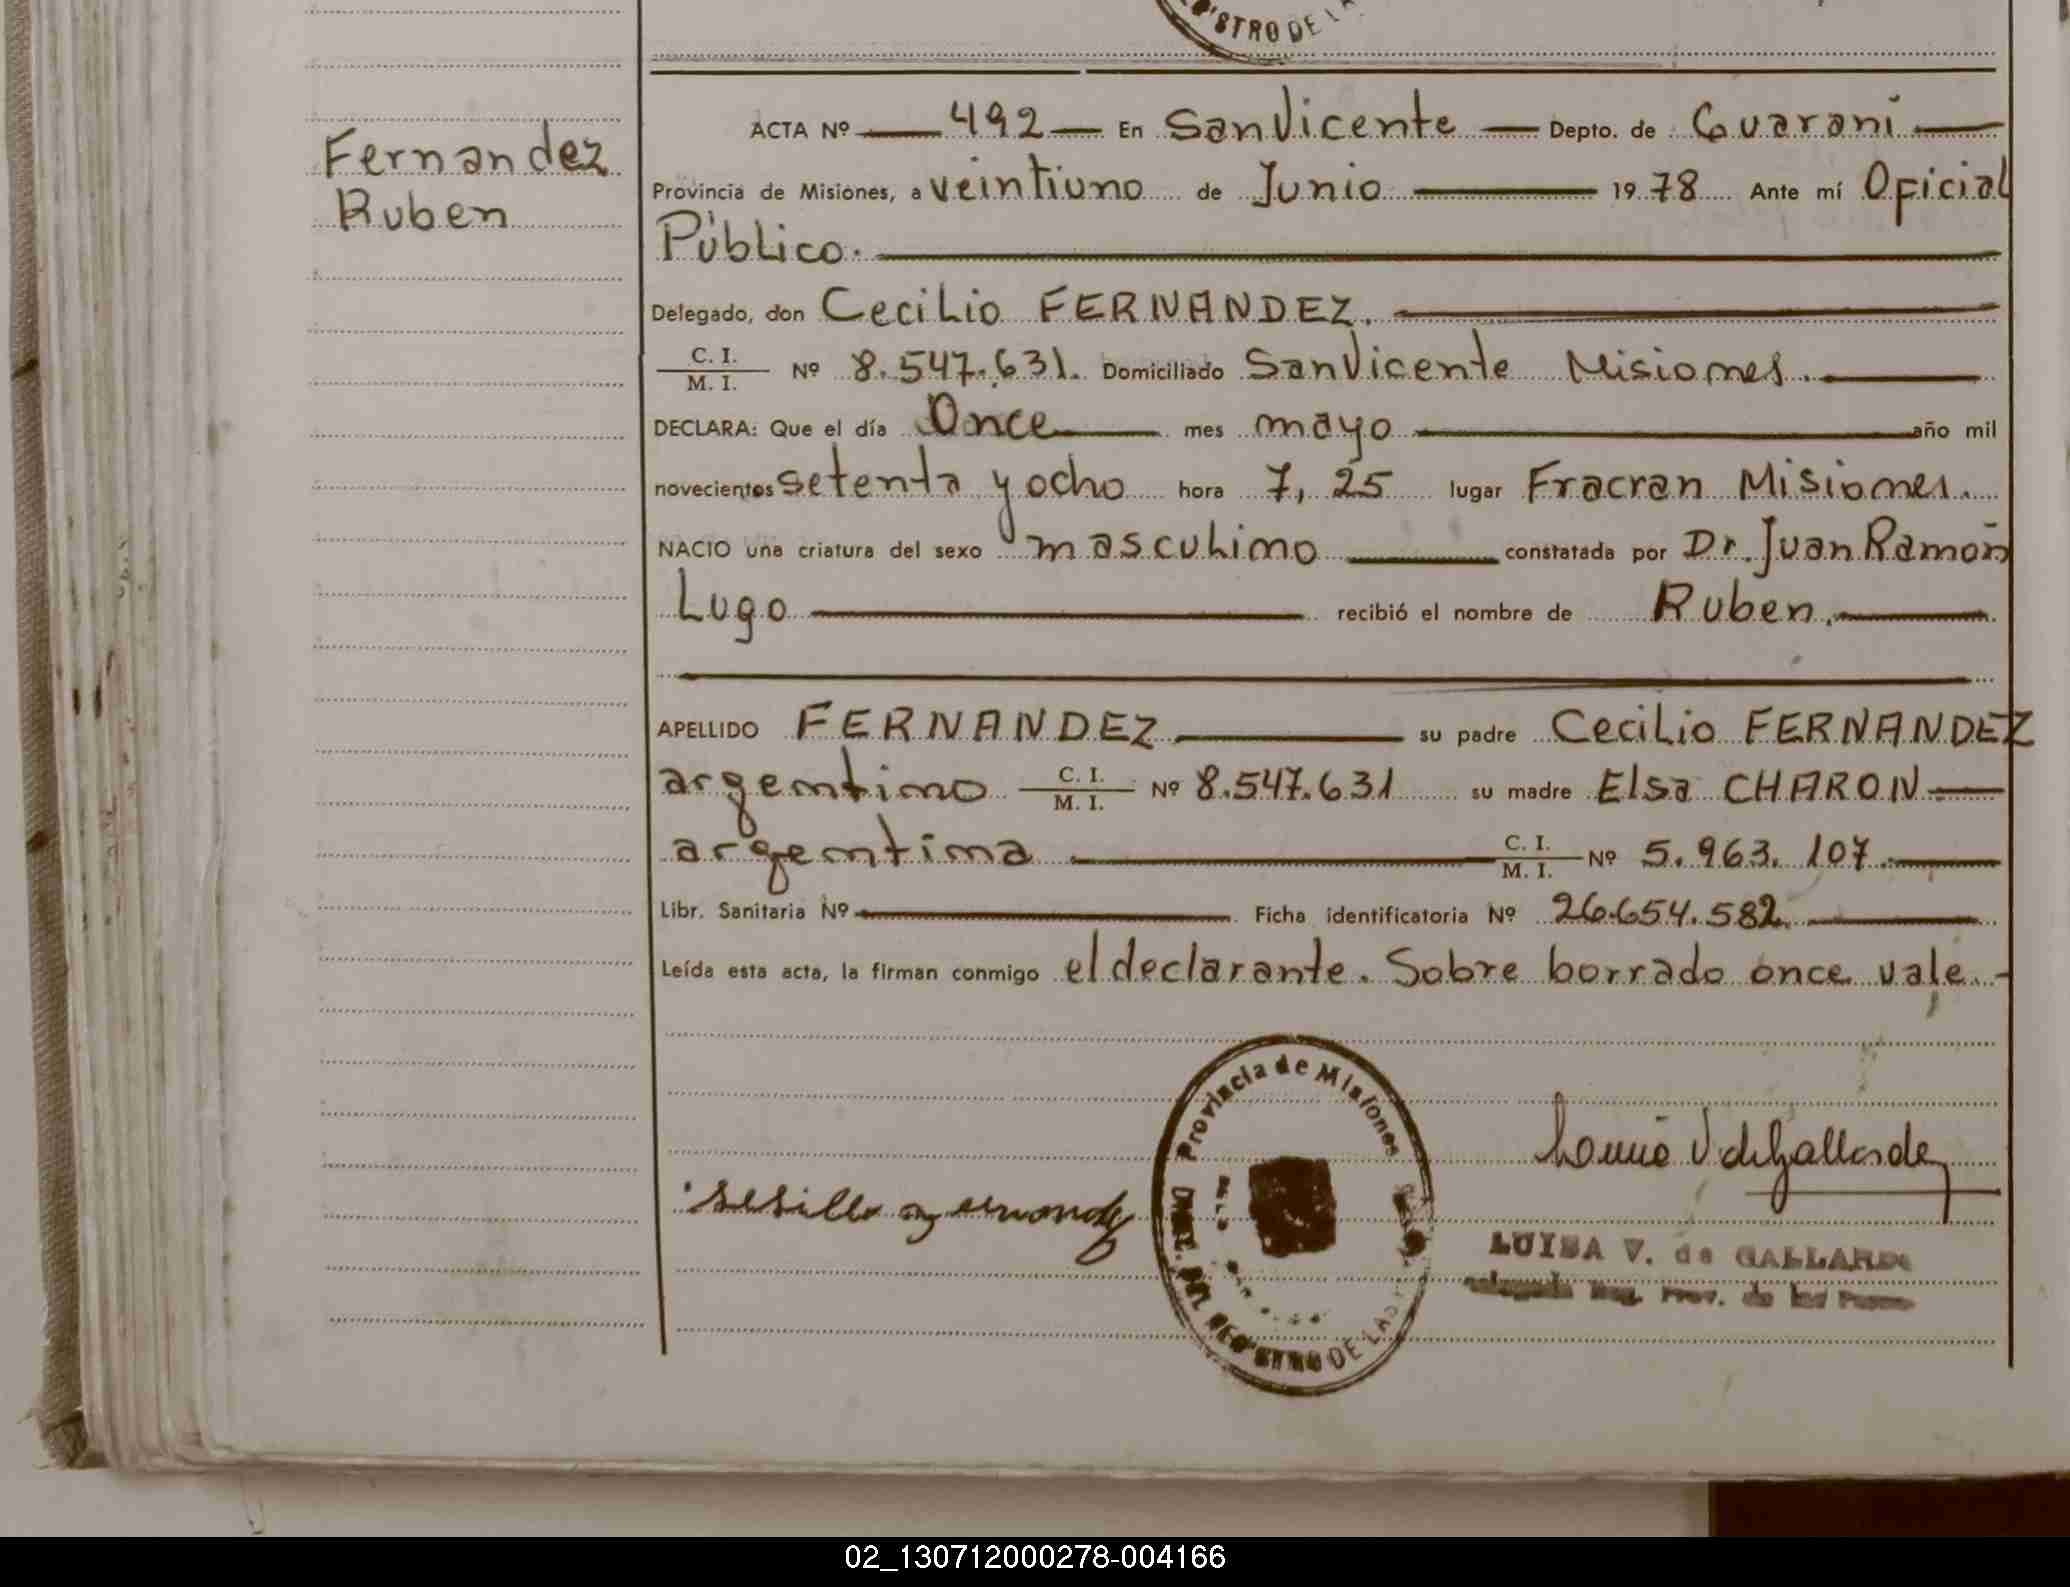 STRO DE LA
Fernandez
Ruben
ACTA Nº 492 En San Vicente Depto. de Guaraní
Provincia de Misiones, a veintiuno de Junio 1978 Ante mí Oficial
Público.
Delegado, don Cecilio FERNANDEZ.
C. I.
M. I. Nº 8.547.631. Domiciliado San Vicente Misiones.
DECLARA: Que el día Once mes mayo año mil
novecientos setenta y ocho hora 7,25 lugar Fracran Misiones.
NACIO una criatura del sexo masculino constatada por Dr. Juan Ramón
Lugo recibió el nombre de Ruben.
APELLIDO FERNANDEZ su padre Cecilio FERNANDEZ
argentino C. I. M. I. Nº 8.547.631 su madre Elsa CHARON
argentina C. I. M. I. Nº 5.963.107.
Libr. Sanitaria Nº Ficha identificatoria Nº 26.654.582.
Leída esta acta, la firman conmigo el declarante. Sobre borrado once vale.-
Provincia de Misiones
DEL REGISTRO DE LAS
LUISA V. de GALLARDO
Prov. de las
02_130712000278-004166